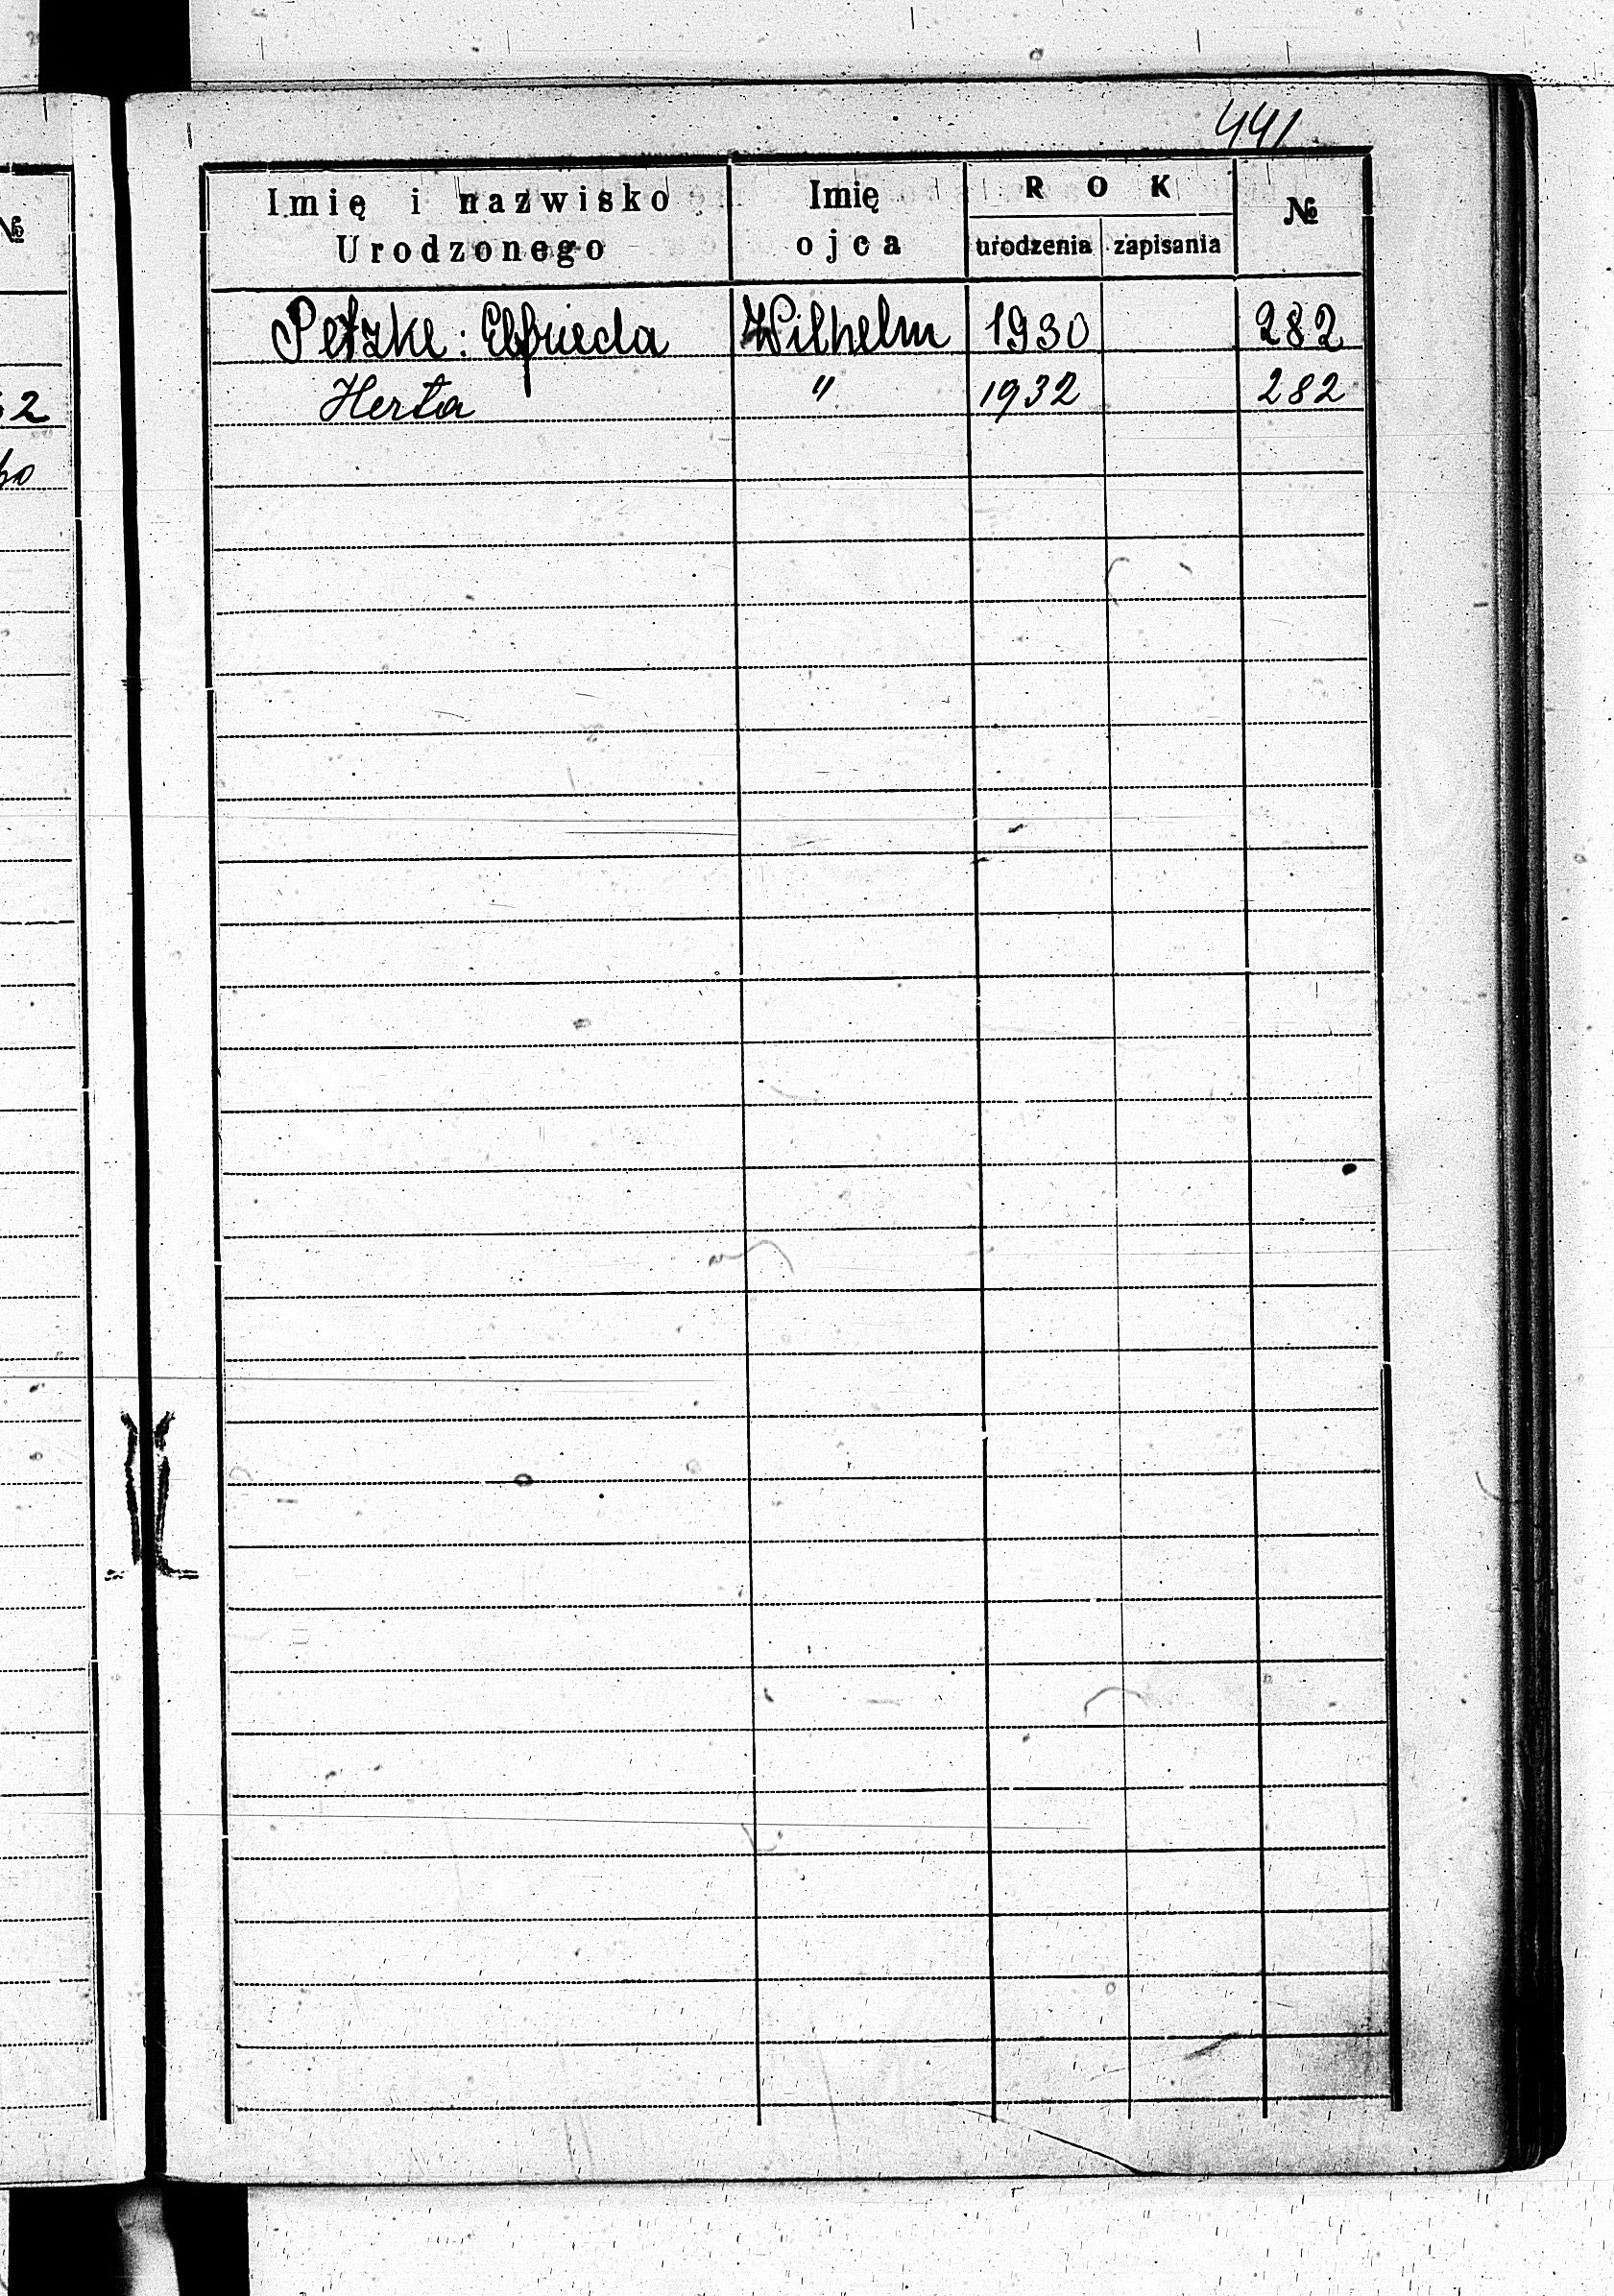 441
№
Imię i nazwisko
Urodzonego
Imię
ojca
ROK
urodzenia zapisania
№
Petzke: Elfrieda Wilhelm 1930 282
Herta " 1932 282
2